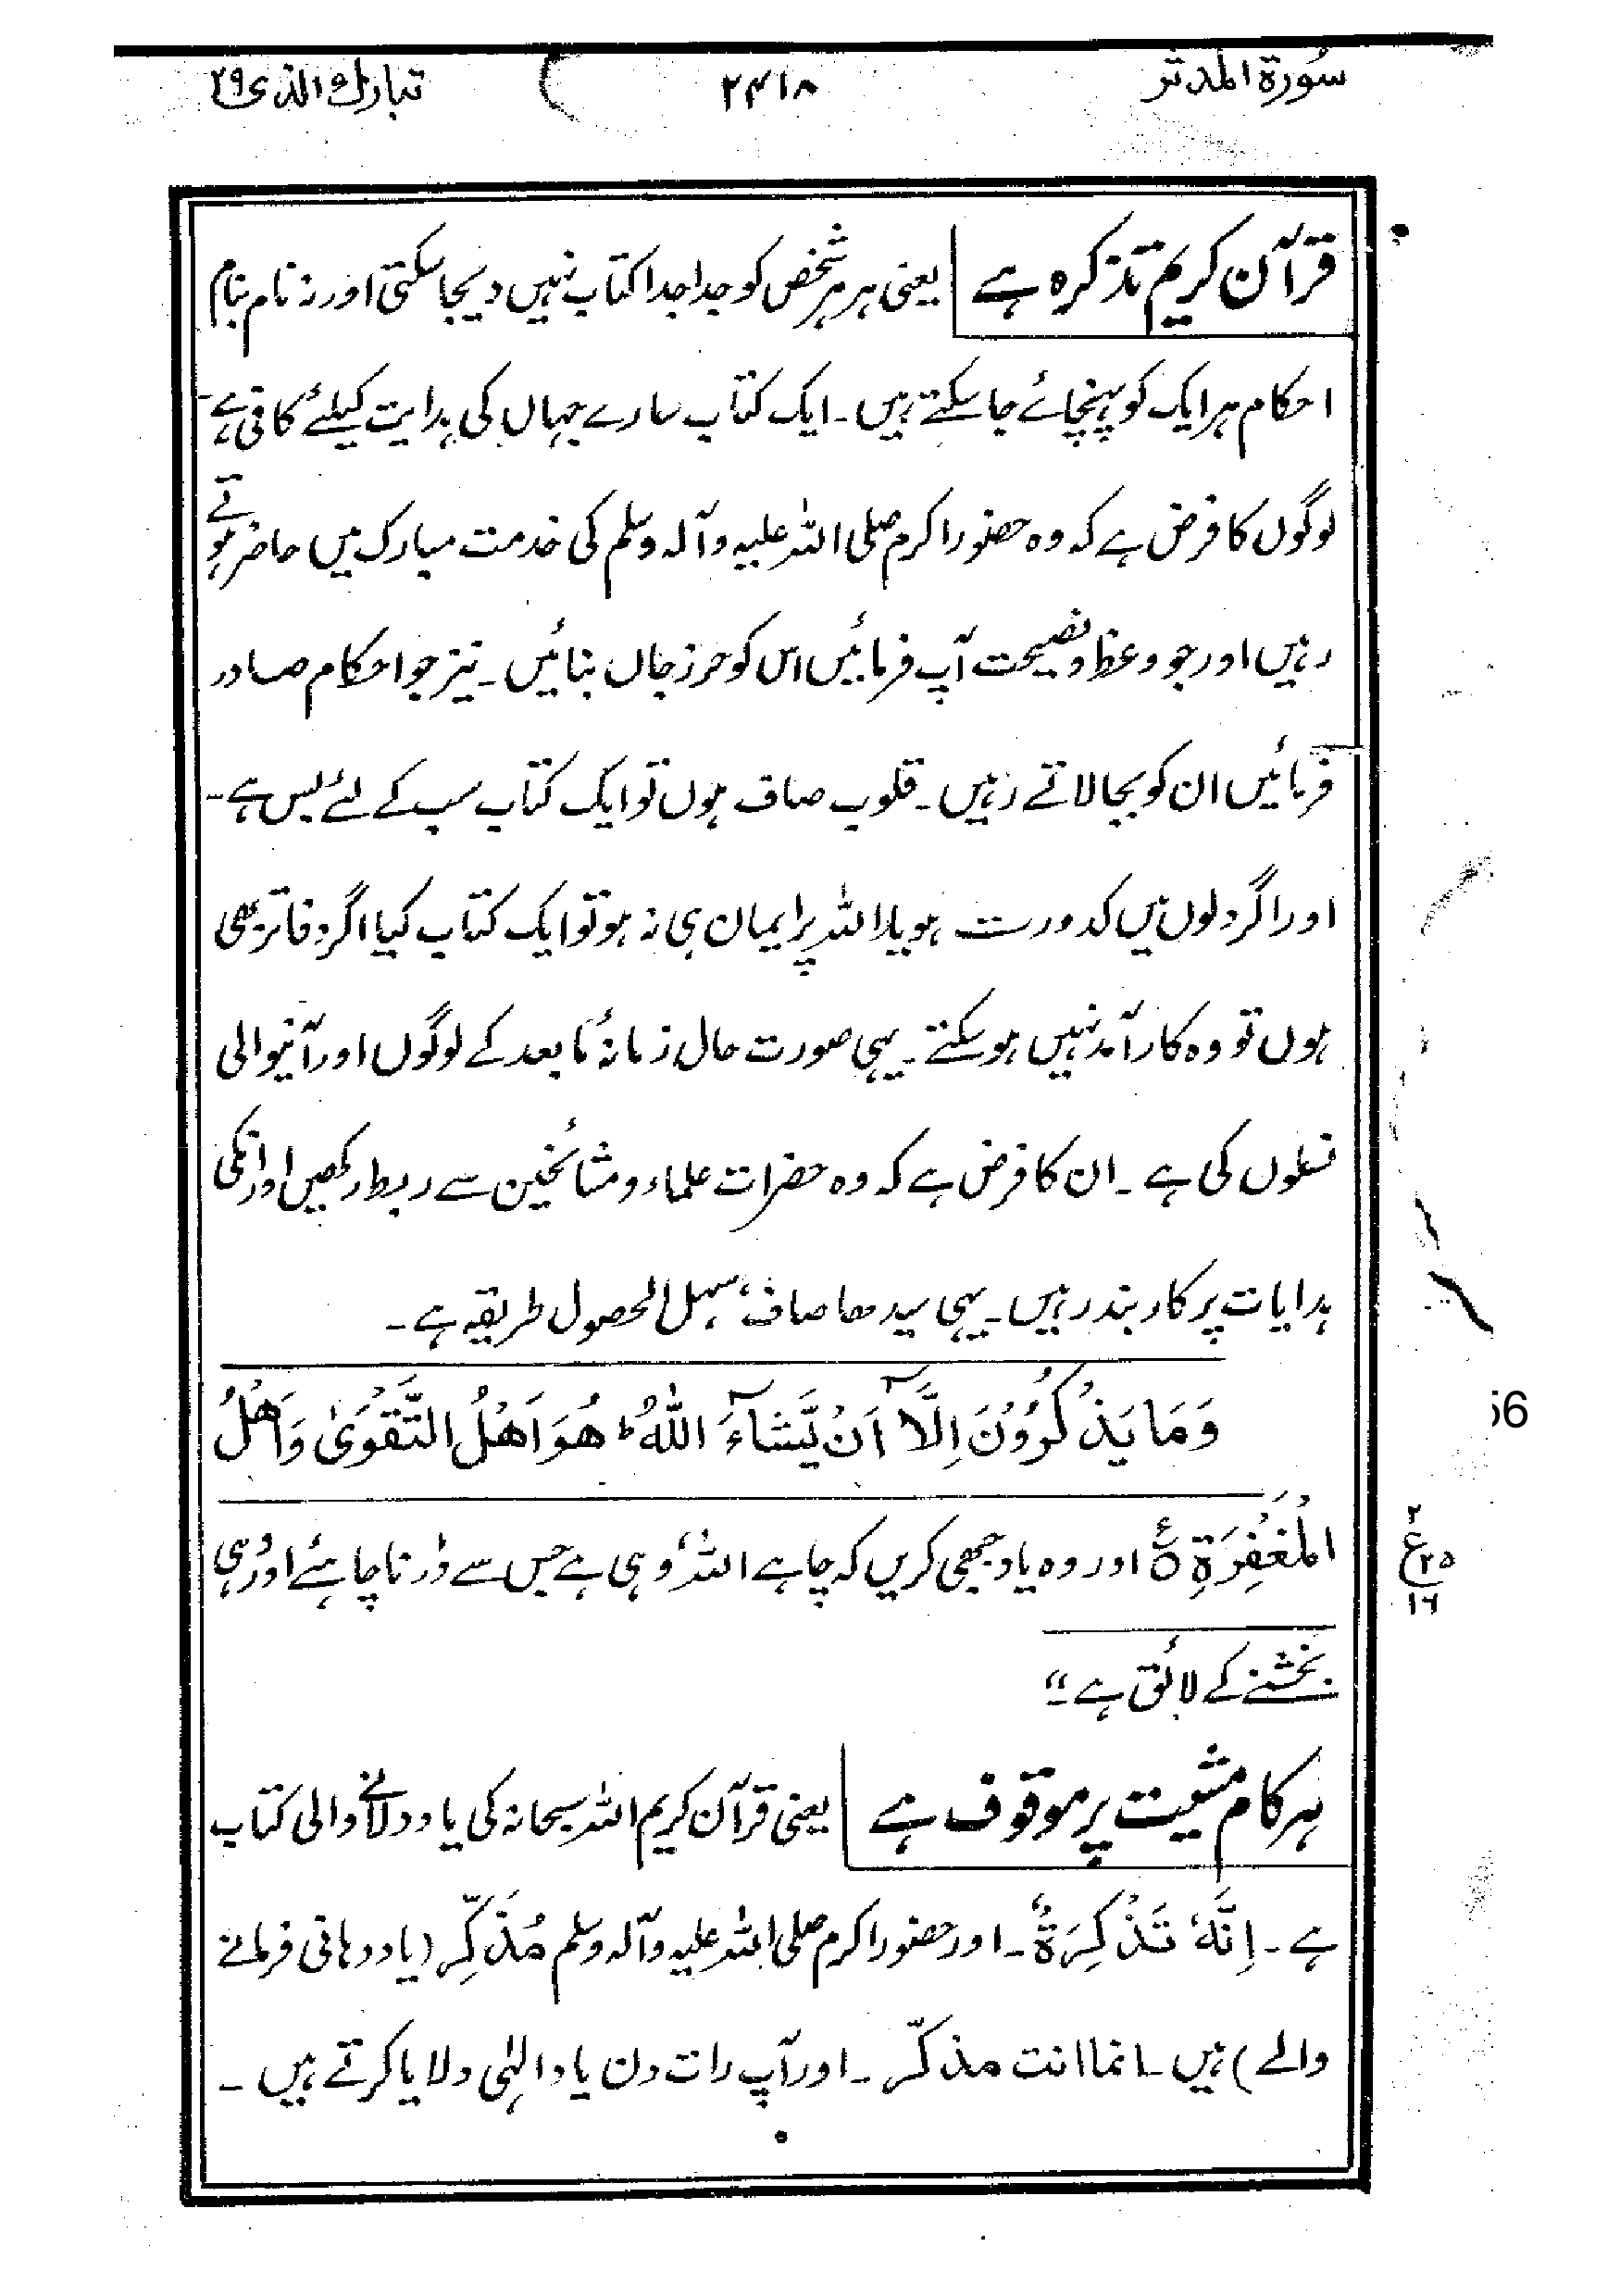 سُورة المدثر ۲۴۱۸ تبارك الذی ۲۹
قرآن کریم تذکرہ ہے یعنی ہر ہر شخص کو جدا جدا کتاب نہیں دیجا سکتی اور نہ نام بنام
احکام ہر ایک کو پہنچائے جا سکتے ہیں۔ ایک کتاب سارے جہاں کی ہدایت کیلئے کافی ہے۔
لوگوں کا فرض ہے کہ وہ حضور اکرم صلی اللہ علیہ وآلہ وسلم کی خدمت مبارک میں حاضر ہوتے
رہیں اور جو وعظ ونصیحت آپ فرمائیں اس کو حرز جاں بنائیں۔ نیز جو احکام صادر
فرمائیں ان کو بجا لاتے رہیں۔ قلوب صاف ہوں تو ایک کتاب سب کے لئے بس ہے۔
اور اگر دلوں میں کدورت ہو یا اللہ پر ایمان ہی نہ ہو تو ایک کتاب کیا اگر دفاتر بھی
ہوں تو وہ کارآمد نہیں ہو سکتے۔ یہی صورت حال زمانۂ مابعد کے لوگوں اور آنیوالی
نسلوں کی ہے۔ ان کا فرض ہے کہ وہ حضرات علماء و مشائخین سے ربط رکھیں اور انکی
ہدایات پر کاربند رہیں۔ یہی سیدھا صاف، سہل الحصول طریقہ ہے۔
وَمَا يَذْكُرُوْنَ اِلَّآ اَنْ يَّشَآءَ اللّٰهُ ؕ هُوَ اَهْلُ التَّقْوٰى وَاَهْلُ
56
الْمَغْفِرَةِ ۝ اور وہ یاد جبھی کریں کہ چاہے اللہ، وہی ہے جس سے ڈرنا چاہئے اور وہی
۲
ع ۲۵
۱۶
بخشنے کے لائق ہے"
ہر کام مشیت پر موقوف ہے یعنی قرآن کریم اللہ سبحانہ کی یاد دلانے والی کتاب
ہے۔ اِنَّهٗ تَذْكِرَةٌ۔ اور حضور اکرم صلی اللہ علیہ وآلہ وسلم مُذَکِّر (یاد دہانی فرمانے
والے) ہیں۔ انما انت مذکّر۔ اور آپ رات دن یاد الٰہی دلایا کرتے ہیں۔